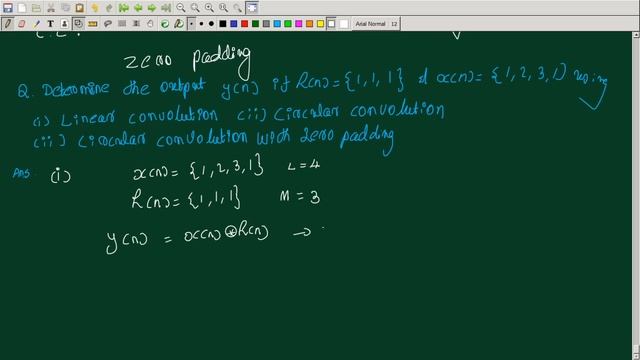 Arial Normal 12
zero padding
Q. Determine the output y(n) if h(n) = {1, 1, 1} & x(n) = {1, 2, 3, 1} using
(i) Linear convolution (ii) Circular convolution
(iii) Circular convolution with zero padding
Ans. (i) x(n) = {1, 2, 3, 1} L = 4
h(n) = {1, 1, 1} M = 3
y(n) = x(n) ⊛ h(n) →